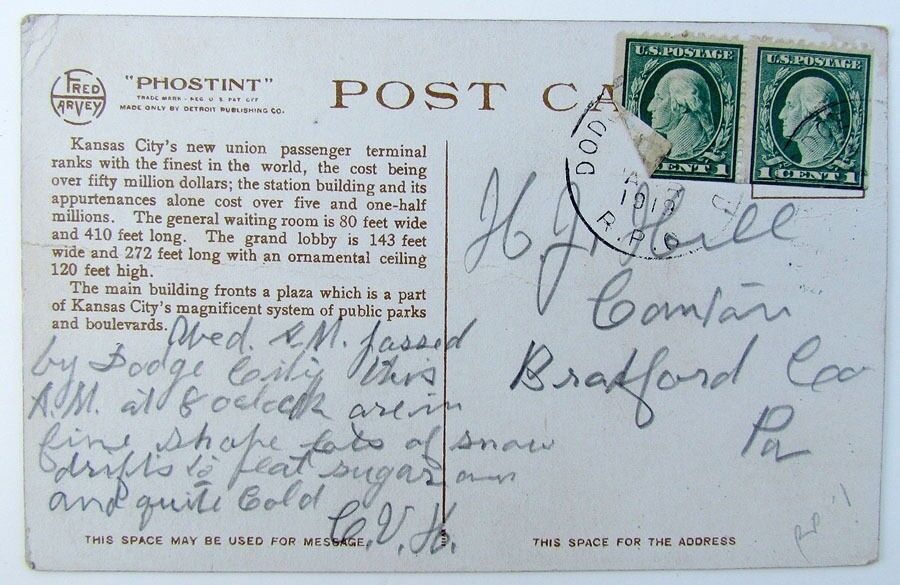 FRED HARVEY
"PHOSTINT"
TRADE MARK - REG U S PAT OFF
MADE ONLY BY DETROIT PUBLISHING CO.
POST CA
U.S.POSTAGE
CENT 1
U.S.POSTAGE
1 CENT 1
DOD
1918
R.P.O
Kansas City's new union passenger terminal
ranks with the finest in the world, the cost being
over fifty million dollars; the station building and its
appurtenances alone cost over five and one-half
millions. The general waiting room is 80 feet wide
and 410 feet long. The grand lobby is 143 feet
wide and 272 feet long with an ornamental ceiling
120 feet high.
The main building fronts a plaza which is a part
of Kansas City's magnificent system of public parks
and boulevards.
Wed. A.M. passed
by Dodge City this
A.M. at 8 oclock are in
fine shape lots of snow
drifts to beat sugar
and quite Cold
C.V.H.
H. J. Hill
Canton
Bradford Co
Pa
THIS SPACE MAY BE USED FOR MESSAGE
THIS SPACE FOR THE ADDRESS